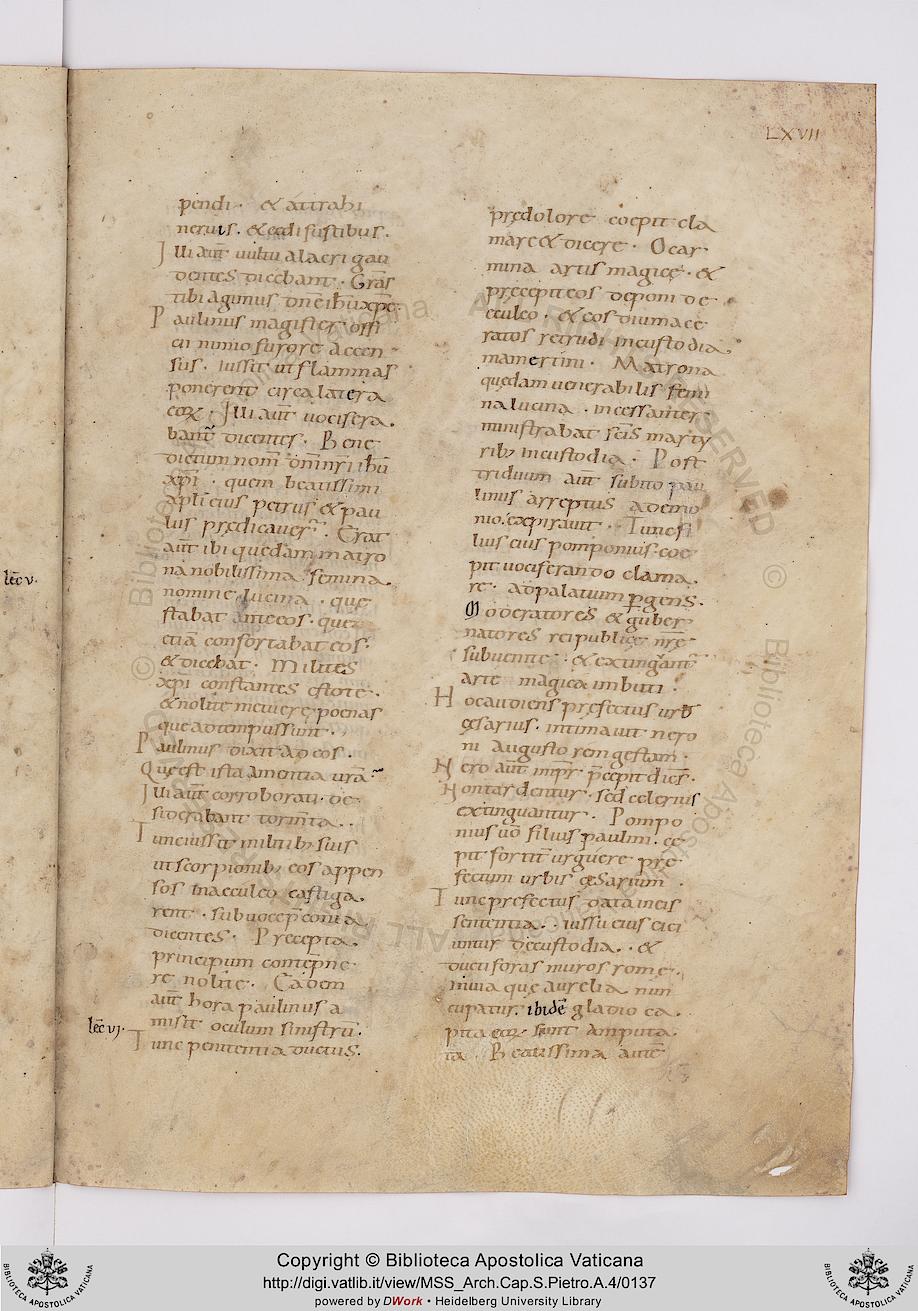 LXVII
pendi· & attrahi
neruis· & cedi fustibus·
Illi aut̄ uultu alacri gau
dentes dicebant· Grās
tibi agimus dn̄e ih̄u xp̄e·
Paulinus magister offi
cii nimio furore accen
sus· iussit ut flammas
ponerent circa latera
eoꝝ· Illi aut̄ uocifera
bant̄ dicentes· Bene
dictum nom̄ dn̄i nr̄i ih̄u
xp̄i· quem beatissimi
apl̄i eius petrus & pau
lus prędicauer̄· Erat
aut̄ ibi quędam matro
na nobilissima femina
nomine lucina· quę
stabat ante eos· quę
etiā confortabat eos·
& dicebat· Milites
xp̄i constantes estote·
& nolite metuere poenas
que ad tempus sunt·
Paulinus dixit ad eos·
Quę est ista amentia urā
Illi aut̄ corroborati· de
siderabant torm̄ta·
lēc v·
Tunc iussit militib; suis
ut scorpionib; eos appen
sos in aeculeo castiga
rent· sub uoce p̄conia
dicentes· Precepta
principum contēpne
re nolite· Eadem
aut̄ hora paulinus a
misit oculum sinistrū·
lēc vj·
Tunc penitentia ductus·
prędolore coepit cla
mare & dicere· O car
mina artis magicę· &
pręcepit eos deponi de
eculeo· & eos diu mace
ratos retrudi in custodia
mamertini· Matrona
quędam uenerabilis femi
na lucina· incessanter
ministrabat sc̄is marty
rib; in custodia· Post
triduum aut̄ subito pau
linus arreptus a demo
nio· expirauit· Tunc fi
lius eius pomponius· coe
pit uociferando clama
re· ad palatium ꝑgens·
Moderatores & guber
natores rei publicę nrę
subuenite· & extingant̄
arte magica imbuti·
Hoc audiens pręfectus urb̄
cęsarius· intimauit nero
ni augusto rem gestam·
Nero aut̄ imp̄r p̄cepit dices·
Non tardentur· sed celerius
extinguantur· Pompo
nius uō filius paulini· cę
pit fortit̄ urguere pre
fectum urbis cęsarium·
Tunc prefectus data in eis
sententia· iussu eius eici
untur de custodia· &
ducti foras muros rome·
in uia quę aurelia nun
cupatur· ibidē gladio ca
pita eoꝝ sunt amputa
ta· Beatissima autē
Copyright © Biblioteca Apostolica Vaticana
http://digi.vatlib.it/view/MSS_Arch.Cap.S.Pietro.A.4/0137
powered by DWork • Heidelberg University Library